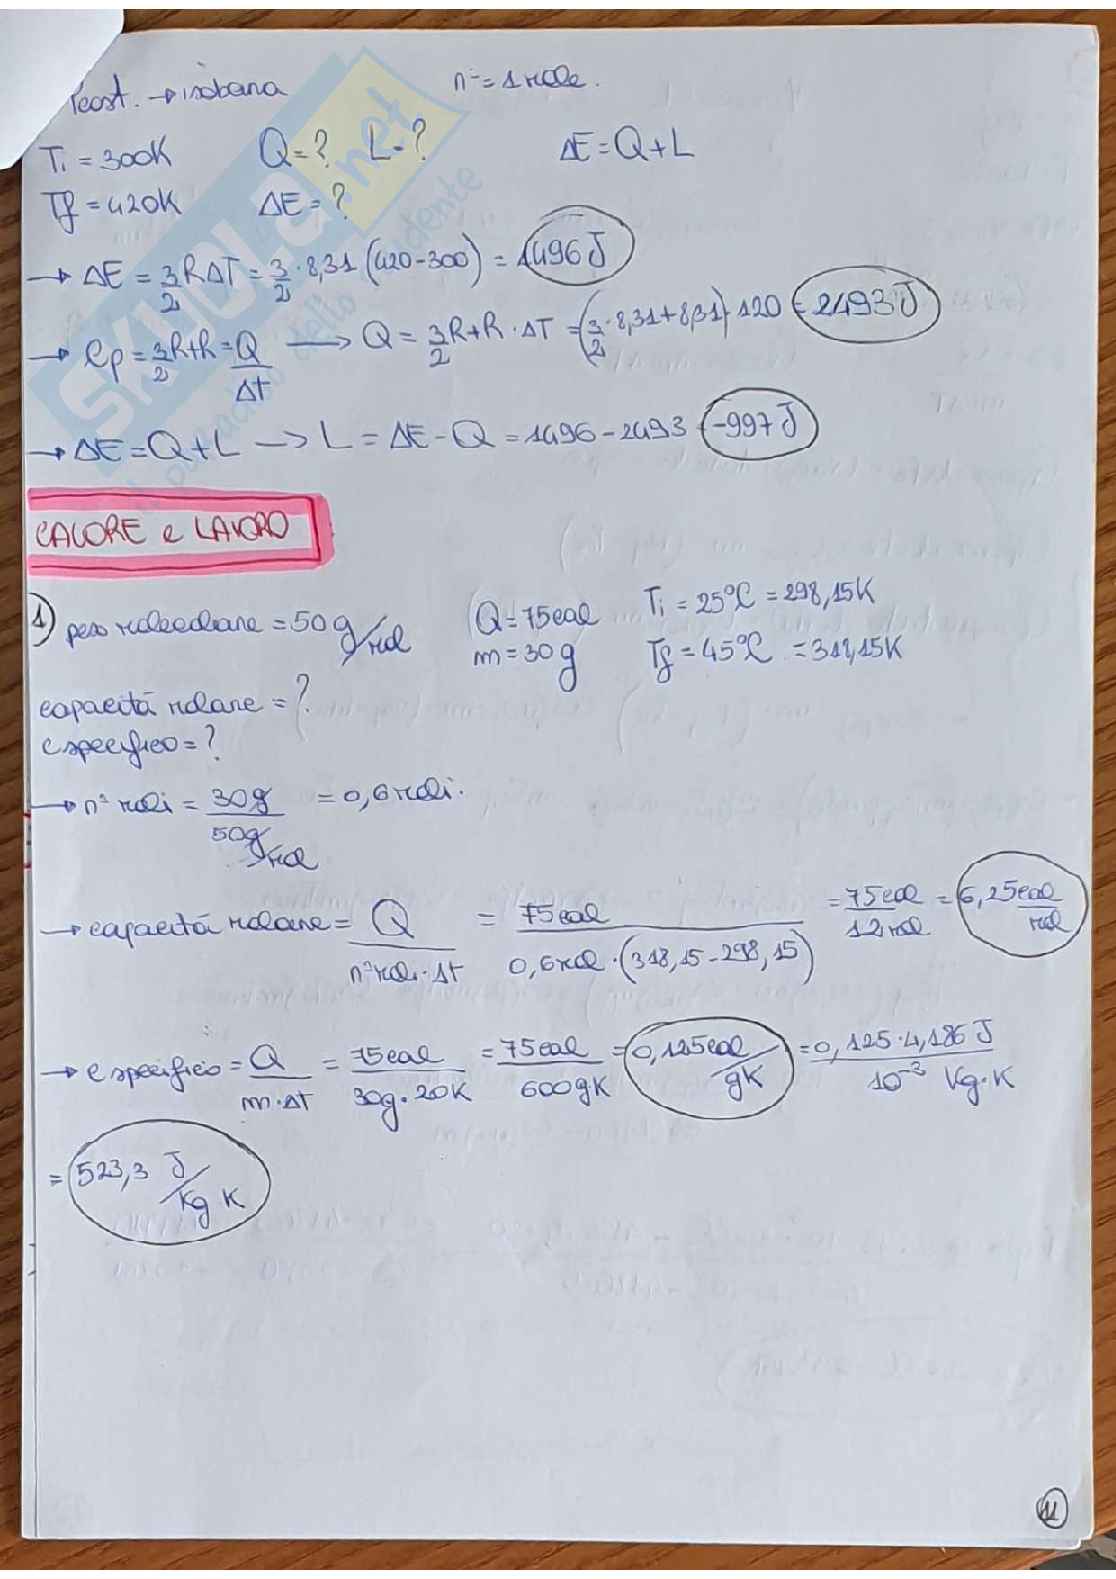 Pcost. → isobara n° = 1 mole.
Ti = 300K Q = ? L = ? ΔE = Q + L
Tf = 420K ΔE = ?
→ ΔE = 3/2 RΔT = 3/2 · 8,31 (420-300) = 1496 J
→ Cp = 3/2 R + R = Q/Δt → Q = 3/2 R + R · ΔT = (3/2 · 8,31 + 8,31) 120 = 2493 J
→ ΔE = Q + L → L = ΔE - Q = 1496 - 2493 = -997 J
CALORE e LAVORO
1) peso molecolare = 50 g/mol Q = 75cal Ti = 25°C = 298,15K
m = 30g Tf = 45°C = 318,15K
capacitá molare = ?
c specifico = ?
→ n° moli = 30g / 50 g/mol = 0,6 moli.
→ capacitá molare = Q / n° moli · Δt = 75cal / 0,6 mol · (318,15 - 298,15) = 75cal / 12 mol = 6,25 cal/mol
→ c specifico = Q / m · ΔT = 75cal / 30g · 20K = 75cal / 600gK = 0,125cal / gK = 0,125 · 4,186 J / 10⁻³ Kg · K
= 523,3 J / Kg K
11
SKUOLA.net
il paradiso dello studente